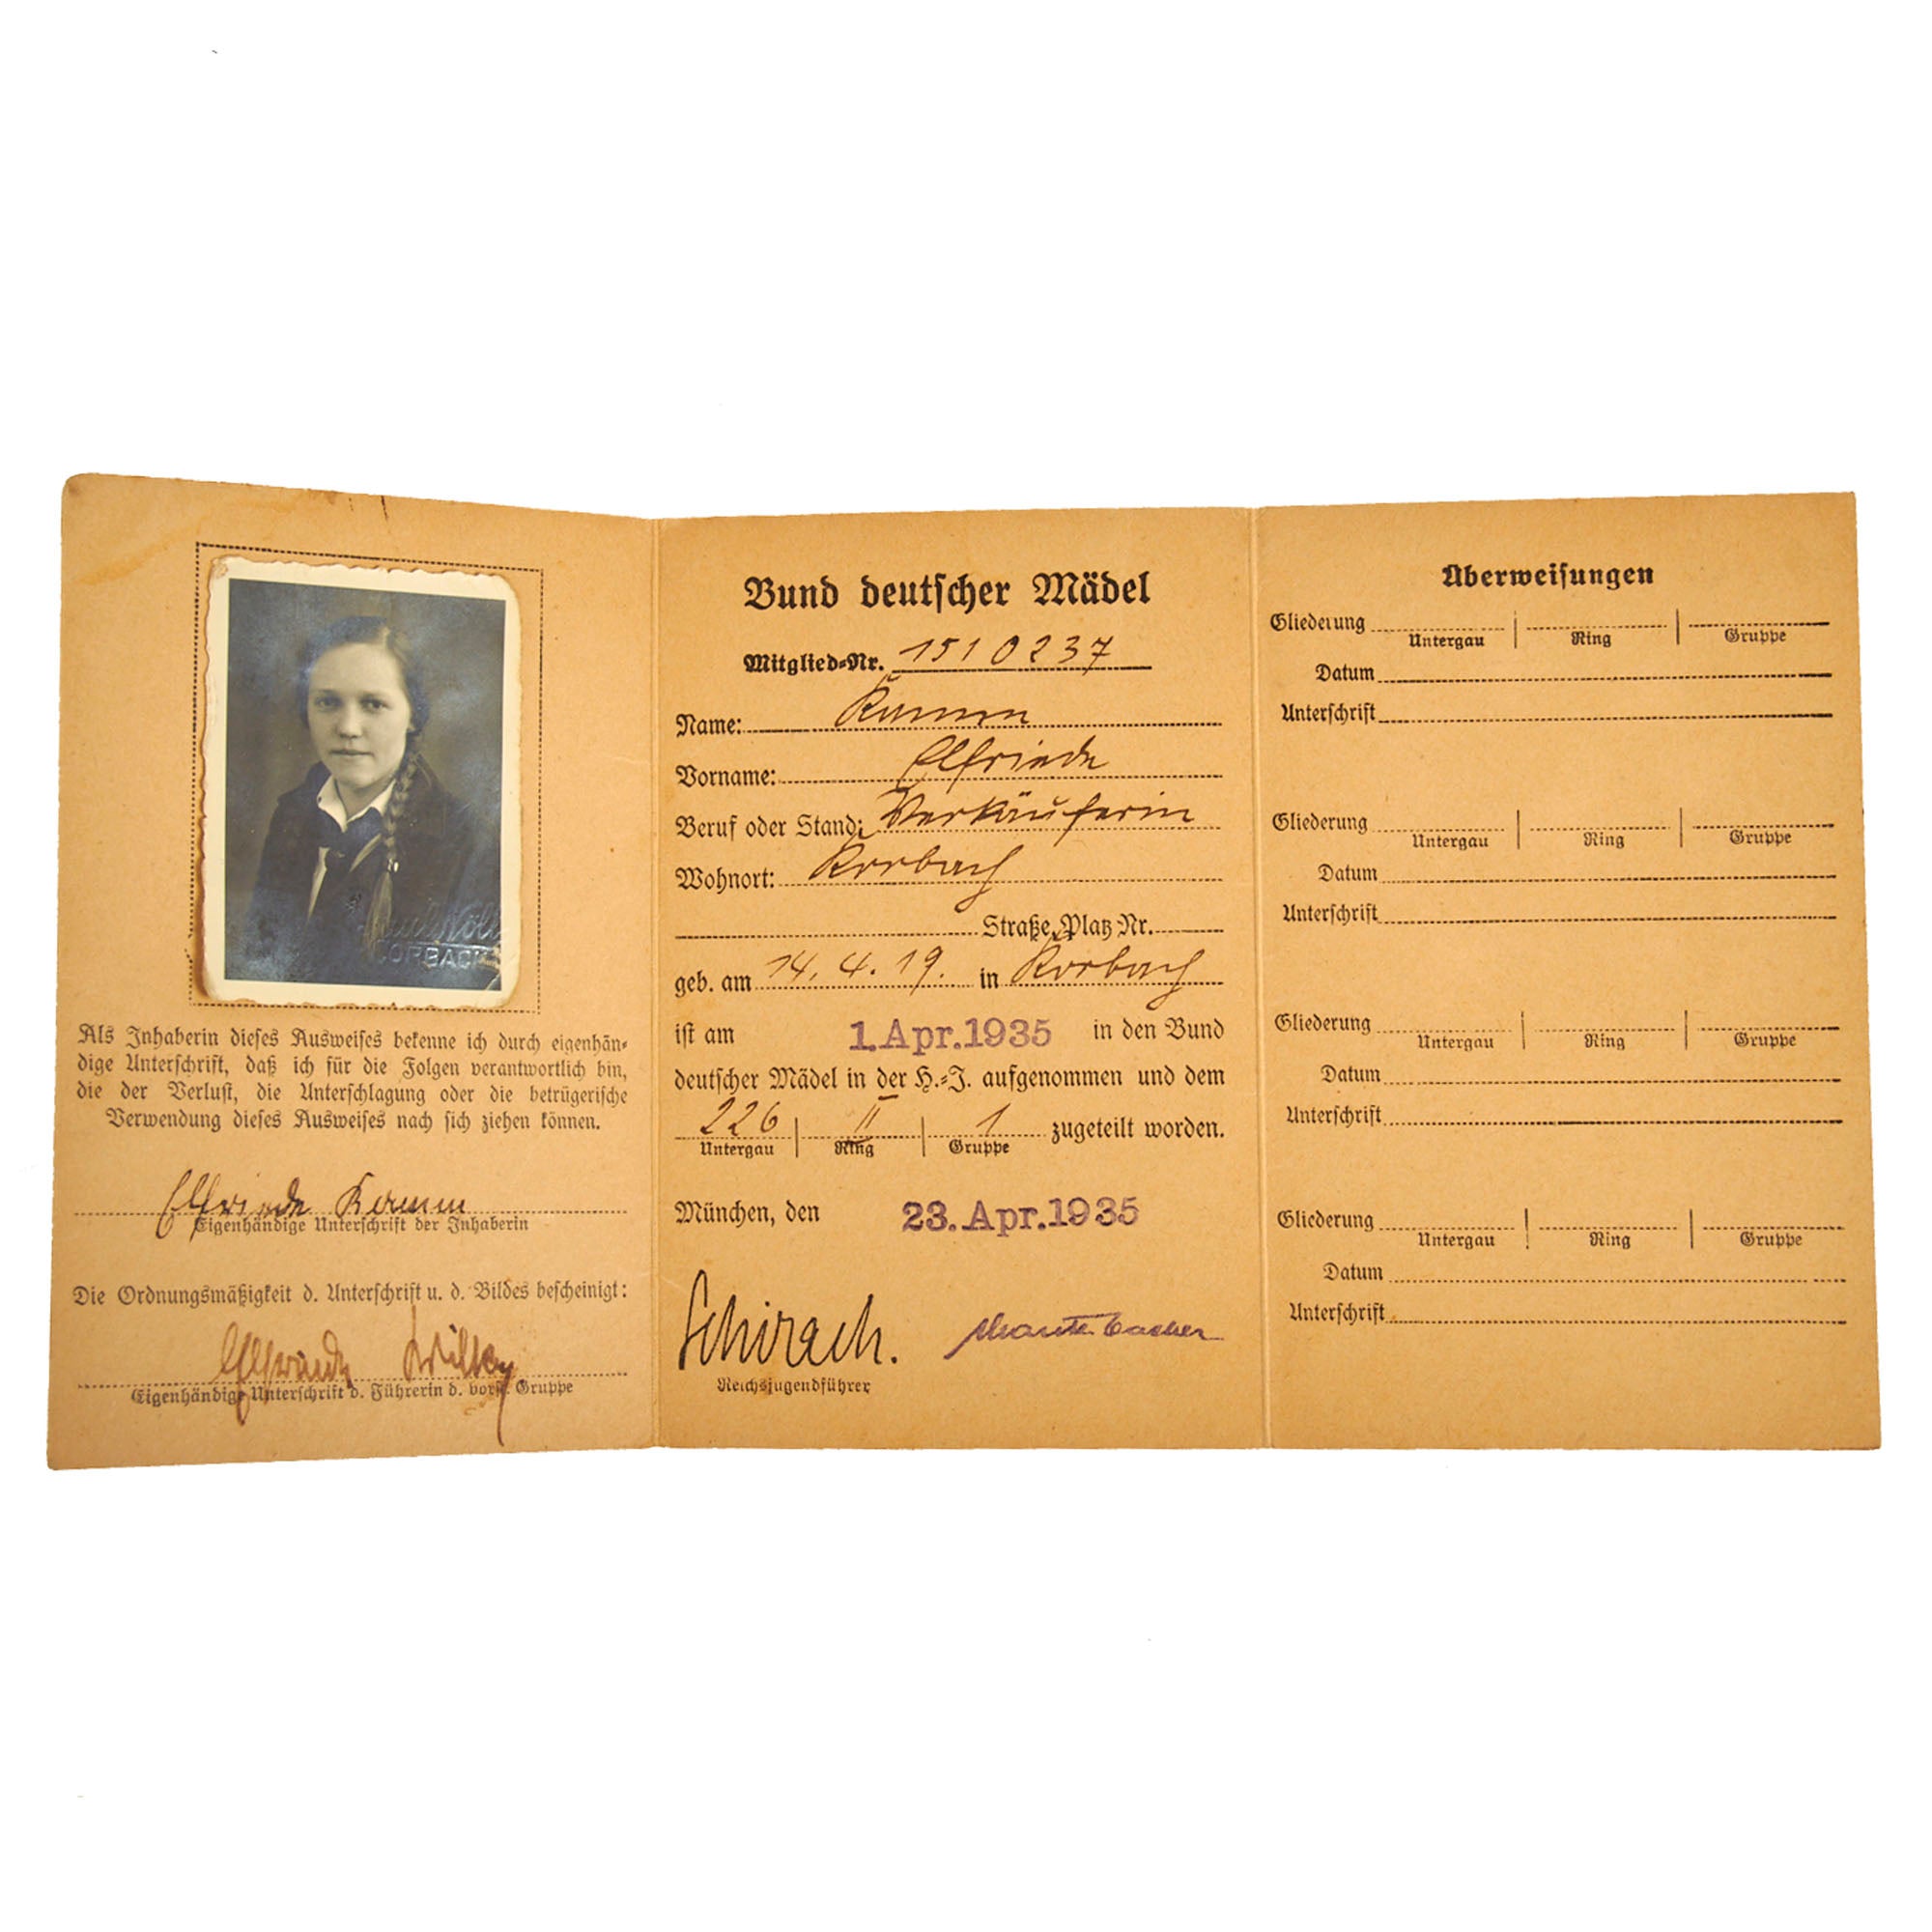 CORBACH
Als Inhaberin dieses Ausweises bekenne ich durch eigenhän-
dige Unterschrift, daß ich für die Folgen verantwortlich bin,
die der Verlust, die Unterschlagung oder die betrügerische
Verwendung dieses Ausweises nach sich ziehen können.
Elfriede Kamm
Eigenhändige Unterschrift der Inhaberin
Die Ordnungsmäßigkeit d. Unterschrift u. d. Bildes bescheinigt:
Elfriede
Eigenhändige Unterschrift d. Führerin d. vorst. Gruppe
Bund deutscher Mädel
Mitglied-Nr. 1510237
Name: Kamm
Vorname: Elfriede
Beruf oder Stand: Verkäuferin
Wohnort: Korbach
Straße, Platz Nr.
geb. am 14. 4. 19. in Korbach
ist am 1. Apr. 1935 in den Bund
deutscher Mädel in der H.-J. aufgenommen und dem
226 II 1 zugeteilt worden.
Untergau Ring Gruppe
München, den 23. Apr. 1935
Schirach.
Reichsjugendführer
Überweisungen
Gliederung
Untergau Ring Gruppe
Datum
Unterschrift
Gliederung
Untergau Ring Gruppe
Datum
Unterschrift
Gliederung
Untergau Ring Gruppe
Datum
Unterschrift
Gliederung
Untergau Ring Gruppe
Datum
Unterschrift